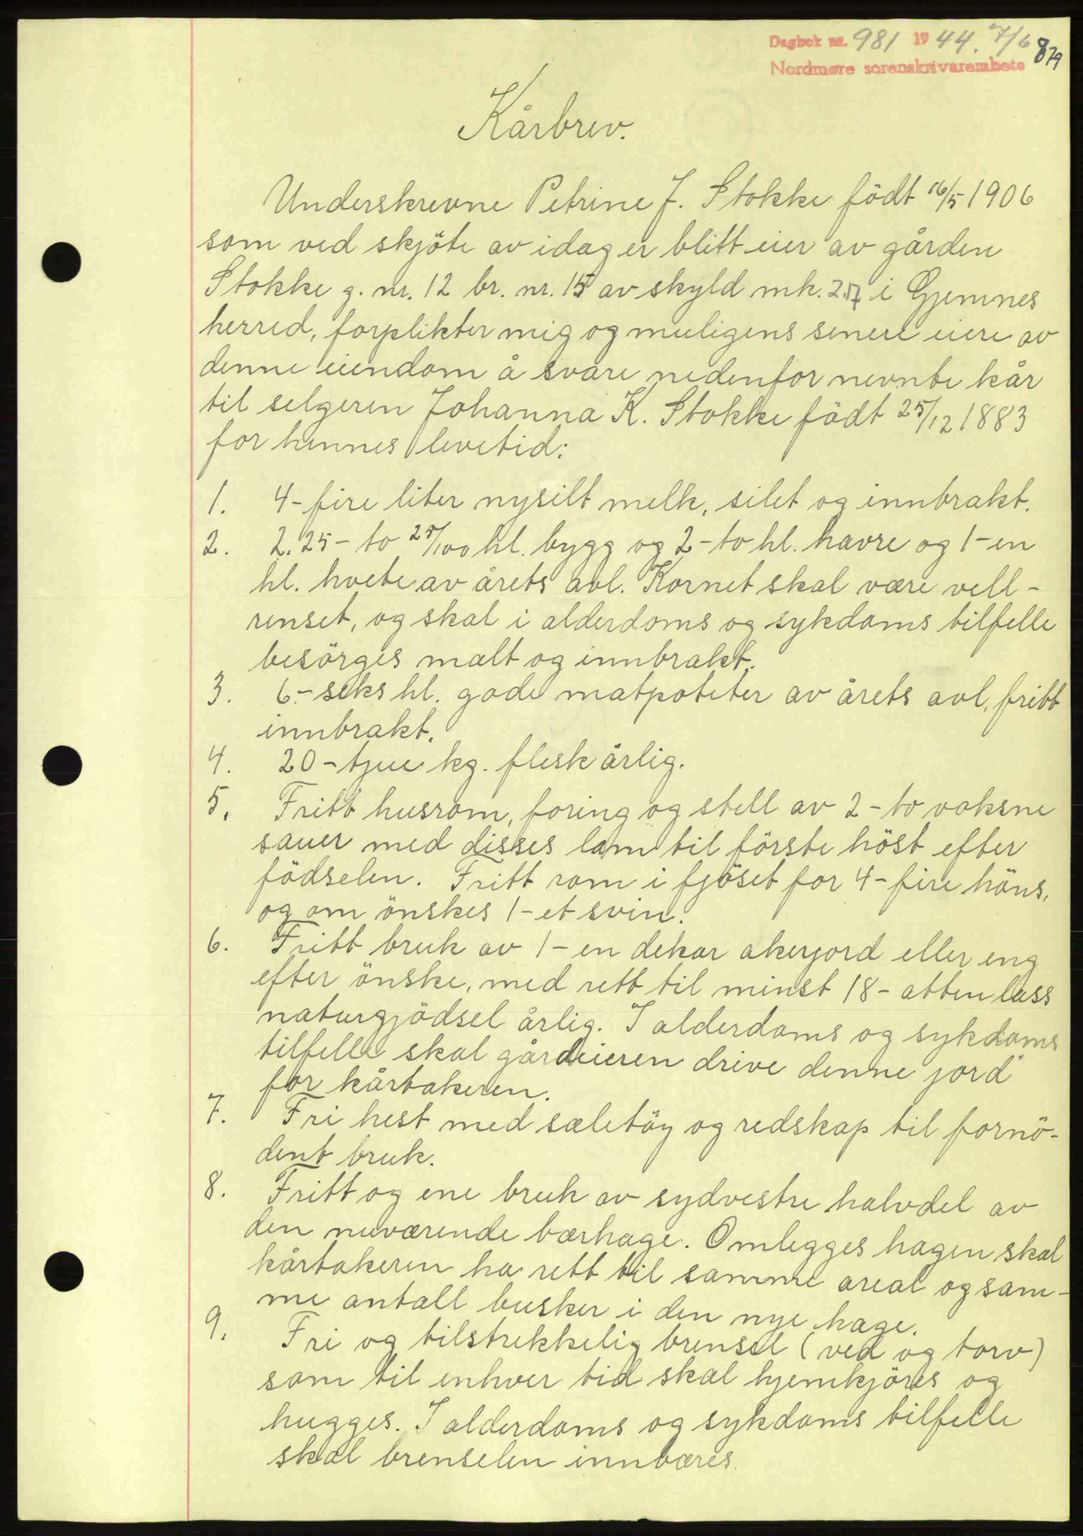 Dagbok nr. 981 1944. 7/6
Nordmøre sorenskrivarembete
879
Kårbrev.
Underskrevne Petrine J. Stokke födt 16/5 1906
som ved skjöte av idag er blitt eier av gården
Stokke g. nr. 12 br. nr. 15 av skyld mk. 2.17 i Gjemnes
herred, forplikter mig og muligens senere eiere av
denne eiendom å svare nedenfor nevnte kår
til selgeren Johanna K. Stokke födt 25/12 1883
for hennes levetid:
1. 4- fire liter nysilt melk, silet og innbrakt.
2. 2.25 - to 25/100 hl. bygg og 2- to hl. havre og 1- en
hl. hvete av årets avl. Kornet skal være vell-
renset, og skal i alderdoms og sykdoms tilfelle
besörges malt og innbrakt.
3. 6.- seks hl. gode matpoteter av årets avl, fritt
innbrakt.
4. 20 - tjue kg. flesk årlig.
5. Fritt husrom, foring og stell av 2 - to voksne
sauer med disses lam til förste höst efter
födselen. Fritt rom i fjöset for 4 - fire höns,
og om önskes 1- et svin.
6. Fritt bruk av 1 - en dekar akerjord eller eng
efter önske, med rett til minst 18 - atten lass
naturgjödsel årlig. I alderdoms og sykdoms
tilfelle skal gårdeieren drive denne jord
for kårtakeren.
7. Fri hest med sæletöy og redskap til fornö-
dent bruk.
8. Fritt og ene bruk av sydvestre halvdel av
den nuværende bærhage. Omlegges hagen skal
kårtakeren ha rett til samme areal og sam-
me antall busker i den nye hage.
9. Fri og tilstrekkelig brensel (ved og torv)
som til enhver tid skal hjemkjöres og
hugges. I alderdoms og sykdoms tilfelle
skal brenselen innbæres.